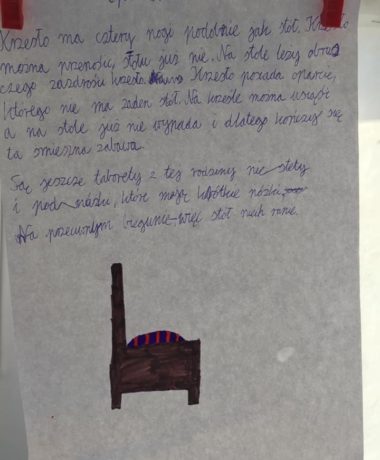 Krzesło ma cztery nogi podobnie jak stół. Krzesło
można przenosić, stołu już nie. Na stole leży obrus
czego zazdrości krzesło. Krzesło posiada oparcie,
którego nie ma żaden stół. Na krześle można usiąść
a na stole już nie wypada i dlatego kończy się
ta śmieszna zabawa.
Są jeszcze taborety z tej rodziny nie stety
i pod nóżki, które mają krótkie nóżki
Na przeciwnym biegunie więc stół niech